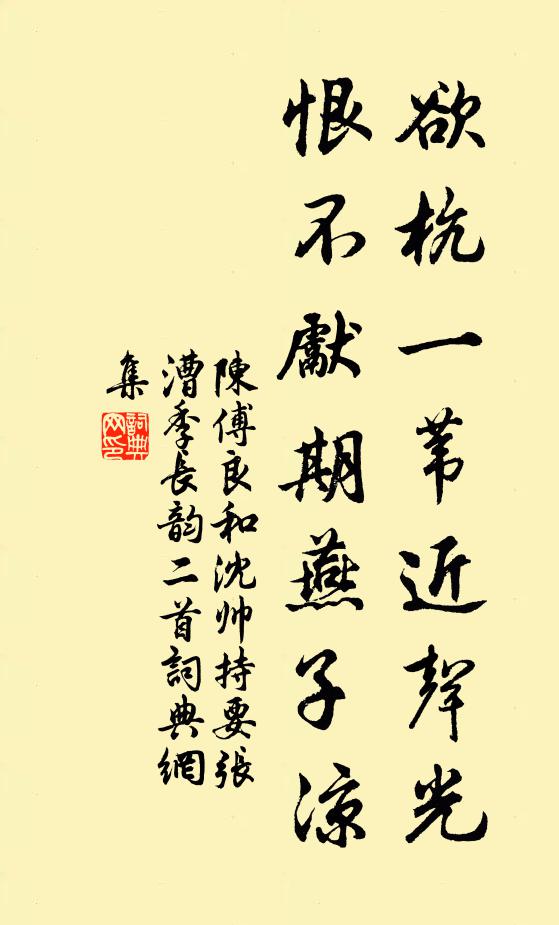 欲杭一苇近聲光
恨不獻期燕子涼
陳傅良和沈帅持要張
漕季長韵二首詞典網
集
詞典
网印